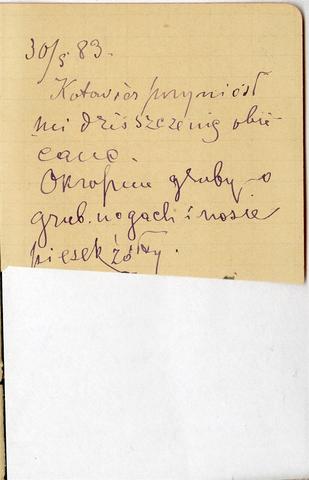 30/5 83.
Kotaviès przyniósł
mi dziś szczenię obie-
cane.
Okropnie gruby o
grub. nogach i nosie
piesek żółty.